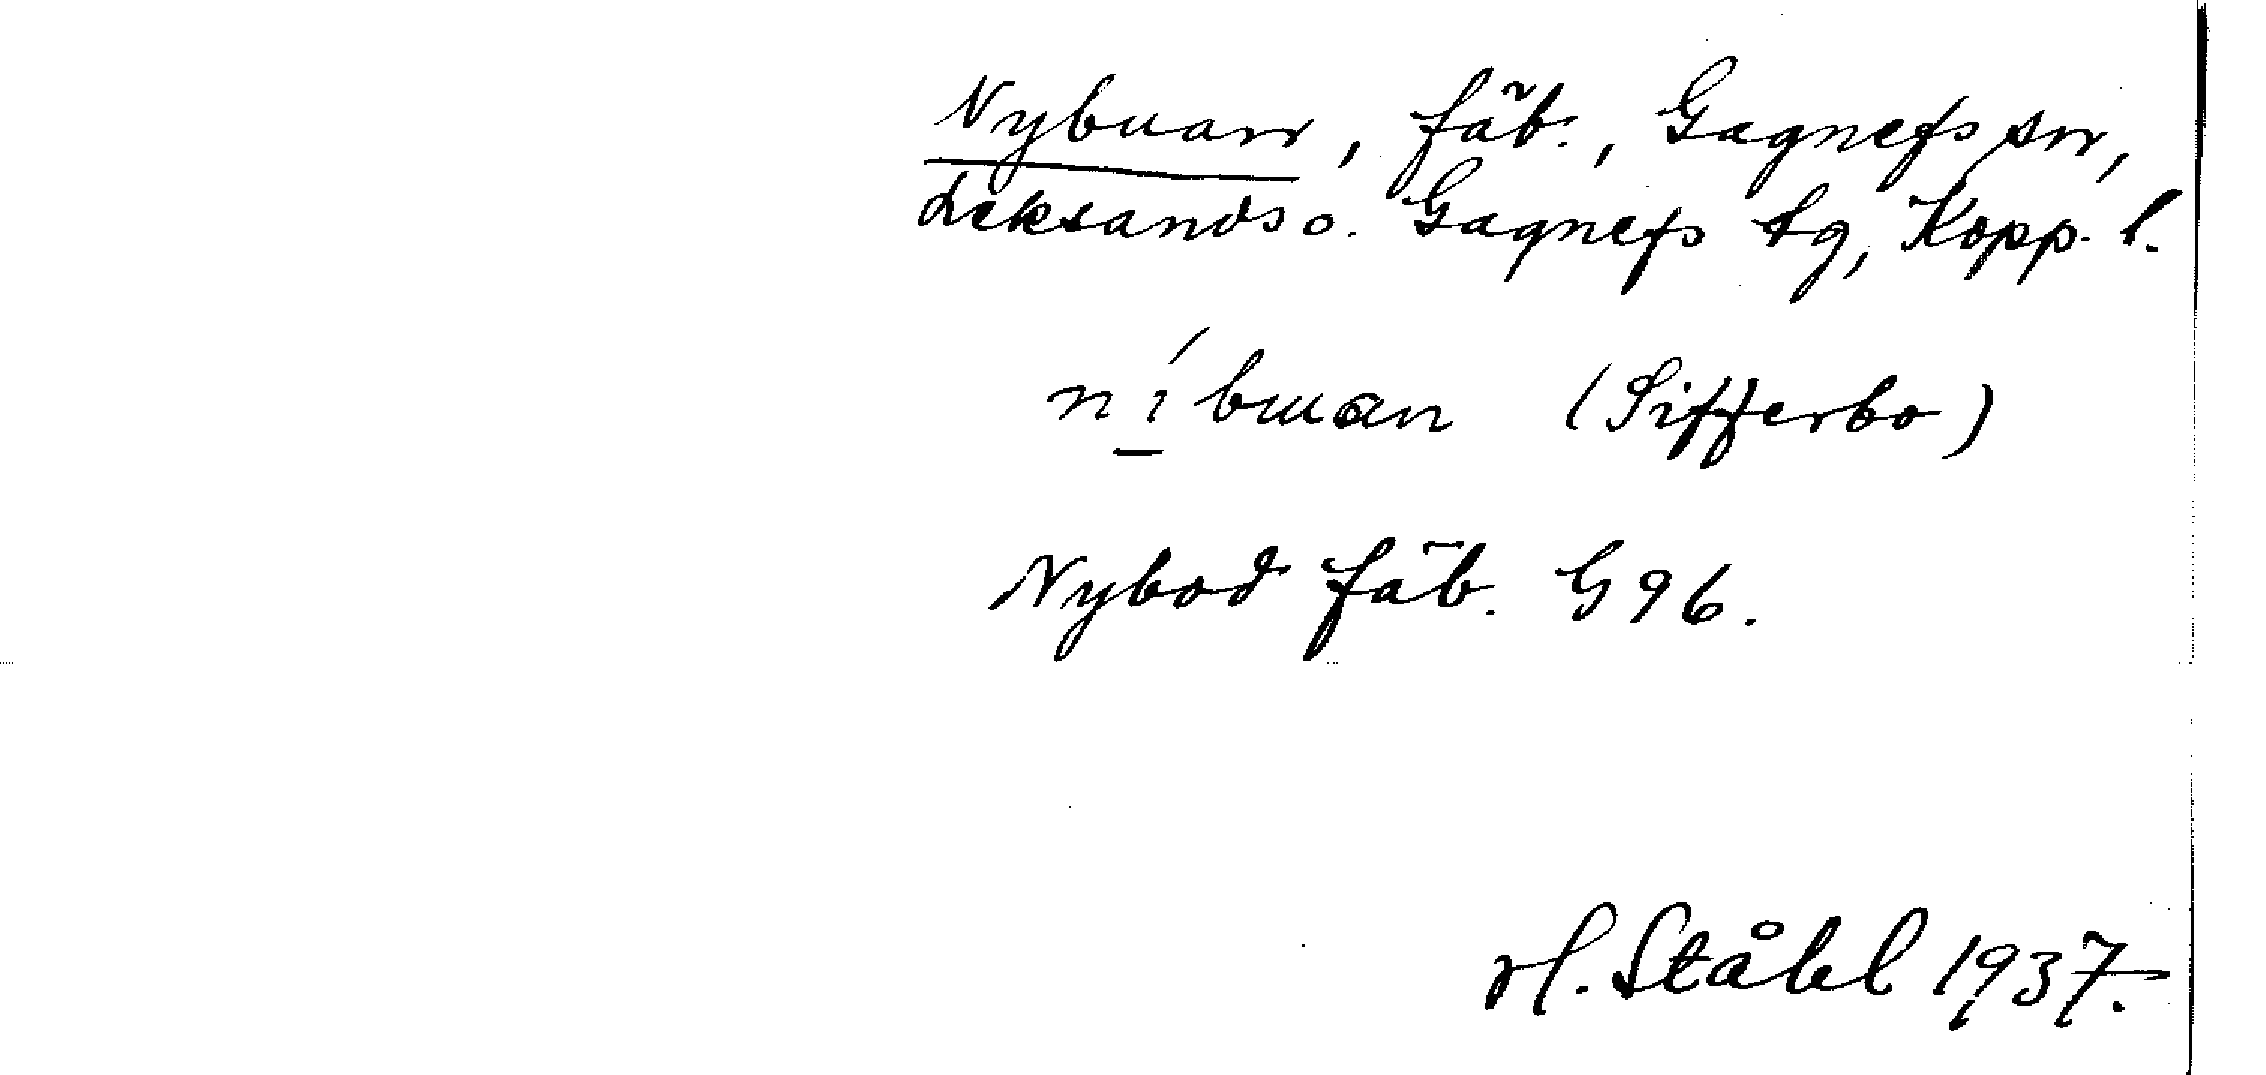 Nybuarr, fäb., Gagnefs sn,
Leksands o. Gagnefs tg, Kopp. l.
(Sifferbo)
Nybod fäb. G 96.
H. Ståhl 1937.